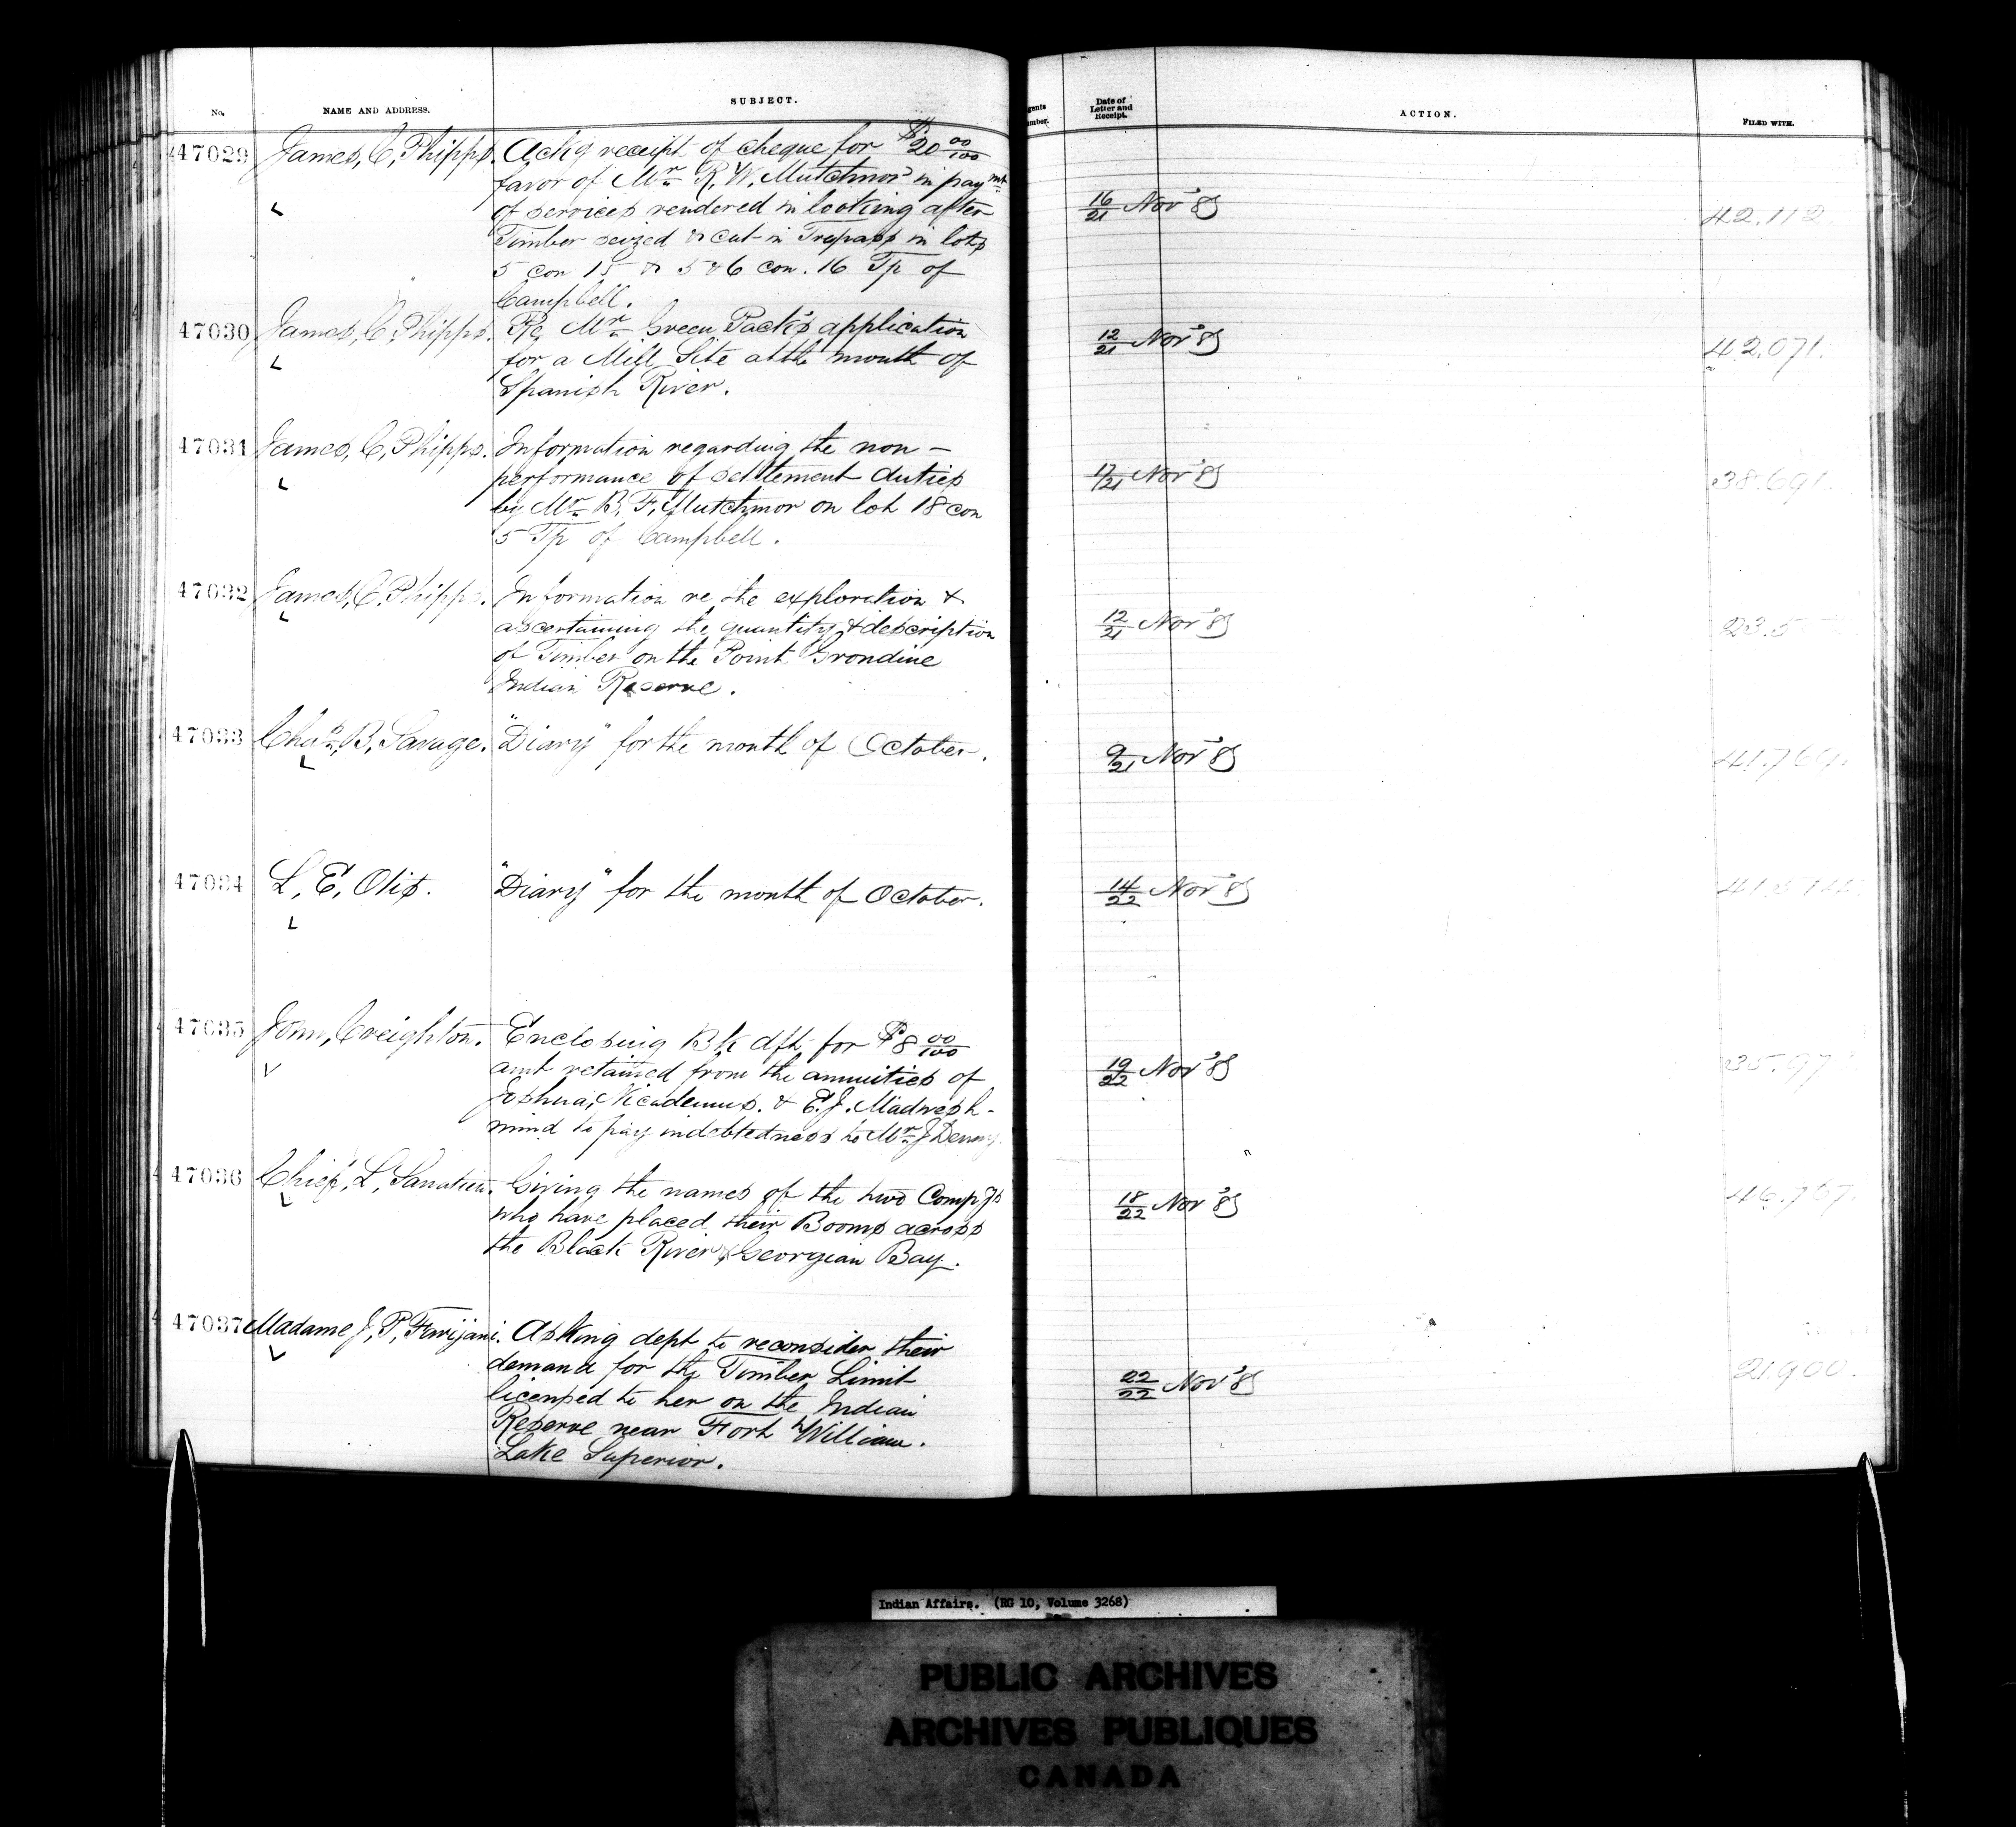 No. NAME AND ADDRESS. SUBJECT. Date of Letter and Receipt. ACTION. FILED WITH.
47029 James, C, Phipps. Ackg receipt of cheque for $20 00/100
favor of Mr R, W, Mutchmor in paymt
of services rendered in looking after
Timber seized & cut in Trepass in lots
5 con 15 & 5 & 6 con. 16 Tp of
Campbell.
16/21 Nov '85 42.112
47030 James, C, Phipps. Re, Mr Green Pack's application
for a Mill Site at the mouth of
Spanish River.
12/21 Nov '85 42.071.
47031 James, C, Phipps. Information regarding the non-
performance of settlement duties
by Mr B, F, Mutchmor on lot 18 con
5 Tp of Campbell.
17/21 Nov '85 38.691
47032 James, C, Phipps. Information re the exploration &
ascertaining the quantity & description
of Timber on the Point Grondine
Indian Reserve.
12/21 Nov '85
47033 Chas, B, Savage. "Diary" for the month of October.
9/21 Nov '85
47034 L, E, Otis. "Diary" for the month of October.
14/22 Nov '85
47035 John, Creighton. Enclosing Bk dft for $8 00/100
amt retained from the annuities of
Joshua, Nicademus. & E. J. Madwesh-
mind to pay indebtedness to Mr J Denny.
19/22 Nov '85
47036 Chief, L, Giving the names of the two Compys
who have placed their Booms across
the Black River & Georgian Bay.
18/22 Nov '85 46.767.
47037 Madame J, P, Asking dept to reconsider their
demand for the Timber Limit
licensed to her on the Indian
Reserve near Fort William.
Lake Superior.
22/22 Nov '85 21.900.
Indian Affairs. (RG 10, Volume 3268)
PUBLIC ARCHIVES
ARCHIVES PUBLIQUES
CANADA